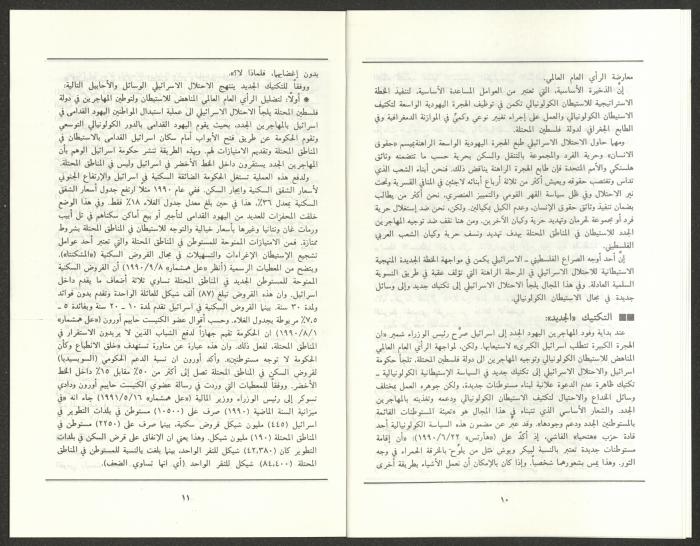 معارضة الرأي العام العالمي.
إنّ الذخيرة الأساسية، التي تعتبر من العوامل المساعدة الأساسية، لتنفيذ الخطة
الاستراتيجية للاستيطان الكولونيالي تكمن في توظيف الهجرة اليهودية الواسعة لتكثيف
الاستيطان الكولونيالي والعمل على إجراء تغيير نوعي وكمّي في الموازنة الدمغرافية وفي
الطابع الجغرافي، لدولة فلسطين المحتلة.
ومهما حاول الاحتلال الاسرائيلي طبع الهجرة اليهودية الواسعة الراهنة بميسم «حقوق
الانسان» وحرية الفرد والمجموعة بالتنقل والسكن بحرية حسب ما تتضمنه وثائق
هلسنكي والأمم المتحدة فإن طابع الهجرة الراهنة يناقض ذلك. فنحن أبناء الشعب الذي
تداس وتغتصب حقوقه ويعيش أكثر من ثلاثة أرباع أبنائه لاجئين في المنافي القسرية وتحت
نير الاحتلال وفي ظل سياسة القهر القومي والتمييز العنصري، نحن أكثر من يطالب
بضمان تنفيذ وثائق حقوق الإنسان، وعدم الكيل بكيالين. ولكن، نحن ضد إستغلال حرية
فرد أو مجموعة لحرمان وتهديد حرية وكيان الآخرين. ومن هنا نقف ضد توجيه المهاجرين
الجدد للاستيطان في المناطق المحتلة بهدف تهديد ونسف حرية وكيان الشعب العربي
الفلسطيني.
إنّ أحد أوجه الصراع الفلسطيني ـ الاسرائيلي يكمن في مواجهة الخطة الجديدة المنهجية
الاستيطانية للاحتلال الاسرائيلي في المرحلة الراهنة التي تؤلف عقبة في طريق التسوية
السلمية العادلة. وفي هذا المجال يلجأ الاحتلال الإسرائيلي إلى تكتيك جديد وإلى وسائل
جديدة في مجال الاستيطان الكولونيالي.
■■ التكتيك «الجديد»:
عند بداية وفود المهاجرين اليهود الجدد إلى اسرائيل صرّح رئيس الوزراء شمير «ان
الهجرة الكبيرة تتطلب اسرائيل الكبرى» لاستيعابها. ولكن، لمواجهة الرأي العام العالمي
المناهض للاستيطان الكولونيالي وتوجيه المهاجرين الى دولة فلسطين المحتلة، تلجأ حكومة
اسرائيل والاحتلال الاسرائيلي إلى تكتيك جديد في السياسة الإستيطانية الكولونيالية ـ
تكتيك ظاهرة عدم الدعوة علانية لبناء مستوطنات جديدة، ولكن جوهره العمل بمختلف
وسائل الخداع والاحتيال لتكثيف الاستيطان الكولونيالي ودعمه وتغذيته بالمهاجرين
الجدد. والشعار الأساسي الذي تتبناه في هذا المجال هو «تعبئة المستوطنات القائمة
بالمستوطنين الجدد ودعم وجودها». وقد عبّر عن مضمون هذه السياسة الكولونيالية أحد
قادة حزب «هتحيا» الفاشي، إذ أكدّ على («هآرتس»، ١٩٩٠/٦/٢٢): «أن إقامة
مستوطنات جديدة تعتبر بالنسبة لبيكر وبوش كمثل من يلوّح بالخرقة الحمراء في وجه
الثور. وهذا يمس بشعورهما شخصياً. وإذا كان بالإمكان أن نعمل الأشياء بطريقة أخرى
١٠
بدون إغضابهما، فلماذا لا؟».
ووفقاً للتكتيك الجديد ينتهج الاحتلال الاسرائيلي الوسائل والأحابيل التالية:
● أولاً: لتضليل الرأي العام العالمي المناهض للاستيطان ولتوطين المهاجرين في دولة
فلسطين المحتلة يلجأ الاحتلال الاسرائيلي الى عملية استبدال المواطنين اليهود القدامى في
اسرائيل بالمهاجرين الجدد، بحيث يقوم اليهود القدامى بالدور الكولونيالي التوسعي
وتقوم الحكومة عن طريق فتح الأبواب أمام سكان اسرائيل القدامى بالاستيطان في
المناطق المحتلة وتقديم الامتيازات لهم. وبهذه الطريقة تنشر حكومة اسرائيل الوهم بأن
المهاجرين الجدد يستقرون داخل الخط الأخضر في اسرائيل وليس في المناطق المحتلة.
ولدفع هذه العملية تستغل الحكومة الضائقة السكنية في اسرائيل والإرتفاع الجنوني
لأسعار الشقق السكنية وإيجار السكن. ففي عام ١٩٩٠ مثلاً ارتفع جدول أسعار الشقق
السكنية بمعدل ٣٦٪، هذا في حين بلغ معدل جدول الغلاء ١٨٪ فقط. وفي هذا الوضع
خلقت المحفزات للعديد من اليهود القدامى لتأجير أو بيع أماكن سكناهم في تل أبيب
ورمات غان ونتانيا وغيرها بأسعار خيالية والتوجه للاستيطان في المناطق المحتلة بشروط
ممتازة. فمن الامتيازات الممنوحة للمستوطن في المناطق المحتلة والتي تعتبر أحد عوامل
تشجيع الإستيطان الإغراءات والتسهيلات في مجال القروض السكنية («المشكنتاه»).
ويتضح من المعطيات الرسمية (أنظر «عل همشمار» ١٩٩٠/٩/٨) أن القروض السكنية
الممنوحة للمستوطن الجديد في المناطق المحتلة تساوي ثلاثة أضعاف ما يقدم داخل
اسرائيل. وان هذه القروض تبلغ (٨٧) ألف شيكل للعائلة الواحدة وتقدم بدون فوائد
ولمدة ٣٠ سنة. بينما القروض السكنية في اسرائيل تقدم لمدة ١٠ ـ ٢٠ سنة وبفائدة ٥ ـ
٧,٥٪ مربوطة بجدول الغلاء. وحسب أقوال عضو الكنيست حاييم أورون («عل همشمار»
١٩٩٠/٨/١) ان الحكومة تقيم جهازاً لدفع الشباب الذين لا يريدون الاستقرار في
المناطق المحتلة، لفعل ذلك. وان هذه عبارة عن مناورة تستهدف «خلق الانطباع وكأن
الحكومة لا توجه مستوطنين». وأكد أورون ان نسبة الدعم الحكومي (السوبسيديا)
لقروض السكن في المناطق المحتلة تصل إلى أكثر من ٥٠٪ مقابل ١٥٪ داخل الخط
الأخضر. ووفقاً للمعطيات التي وردت في رسالة عضوي الكنيست حاييم أورون ودادي
تسوكر إلى رئيس الوزراء ووزير المالية («عل همشمار» ١٩٩١/٥/١٦) جاء انه «في
ميزانية السنة الماضية (١٩٩٠) صرف على (١٠٥٠٠) مستوطن في بلدات التطوير في
اسرائيل (٤٤٥) مليون شيكل قروض سكنية، بينما صرف على (٢٢٥٠) مستوطن في
المناطق المحتلة (١٩٠) مليون شيكل. وهذا يعني ان الإنفاق على قرض السكن في بلدات
التطوير كان (٤٢,٣٨٠) شيكل للنفر الواحد، بينما بلغت بالنسبة للمستوطن في المناطق
المحتلة (٨٤,٤٠٠) شيكل للنفر الواحد (أي انها تساوي الضعف).
١١